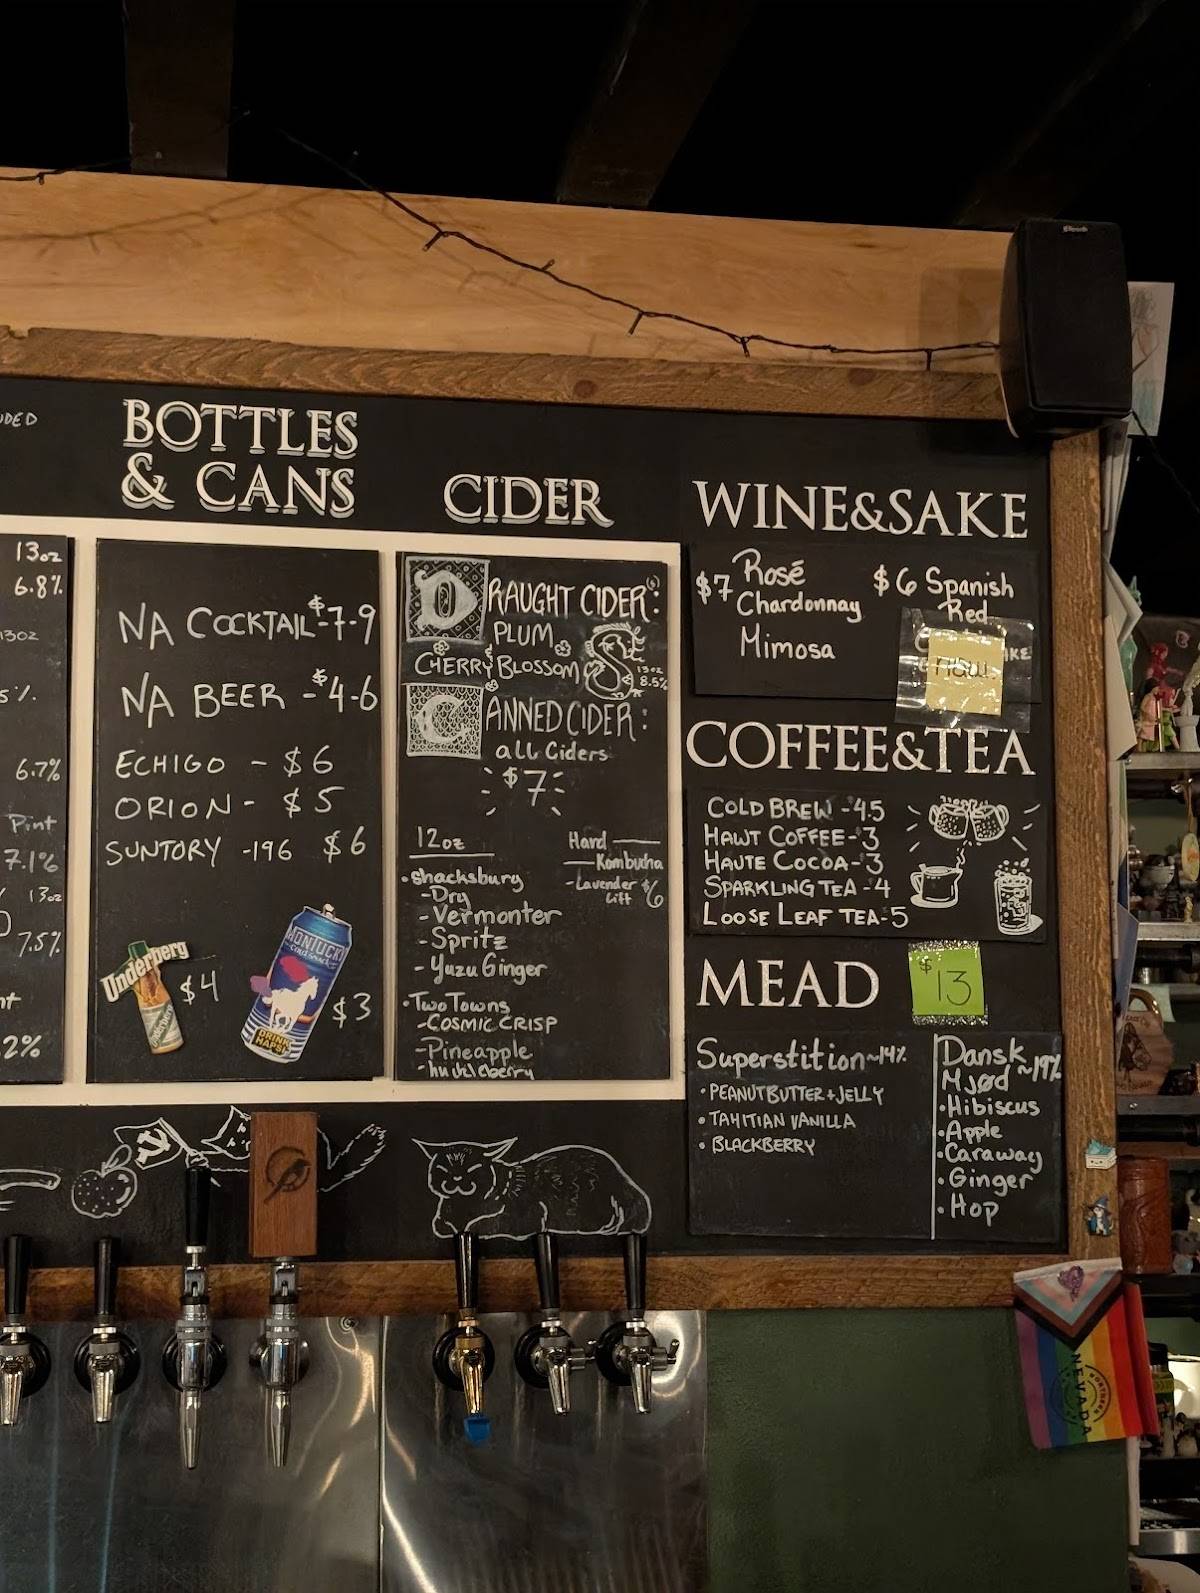 13oz
6.8%
13oz
5%
6.7%
Pint
7.1%
13oz
7.5%
2%
BOTTLES
& CANS
NA COCKTAIL-$7-9
NA BEER -$4-6
ECHIGO - $6
ORION - $5
SUNTORY -196 $6
Underberg
$4
MONTUCKY
COLD SNACK
DRINK
HAPSY
$3
CIDER
DRAUGHT CIDER(s):
PLUM
CHERRY BLOSSOM
13oz
8.5%
CANNED CIDER:
all Ciders
$7
12oz
• Shacksbury
- Dry
- Vermonter
- Spritz
- Yuzu Ginger
• Two Towns
- COSMIC CRISP
- Pineapple
- huckleberry
Hard
Kombucha
- Lavender $6
Lift
WINE&SAKE
$7 Rosé
Chardonnay
Mimosa
$6 Spanish
Red
COFFEE&TEA
COLD BREW - $4.5
HAWT COFFEE - $3
HAUTE COCOA - $3
SPARKLING TEA - $4
LOOSE LEAF TEA - 5
MEAD
$13
Superstition ~14%
• PEANUTBUTTER + JELLY
• TAHITIAN VANILLA
• BLACKBERRY
Dansk
Mjød ~19%
• Hibiscus
• Apple
• Caraway
• Ginger
• Hop
NEVADA
Klipsch